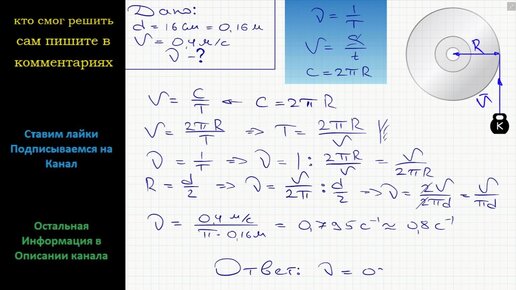 кто смог решить
сам пишите в
комментариях
Ставим лайки
Подписываемся на
Канал
Остальная
Информация в
Описании канала
Дано:
d = 16см = 0,16м
V = 0,4м/с
ν - ?
ν = 1/T
V = S/t
C = 2πR
R
V
K
V = C/T ← C = 2πR
V = 2πR/T => T = 2πR/V
ν = 1/T => ν = 1 : 2πR/V = V/2πR
R = d/2 => ν = V/2π : d/2 => ν = 2V/2πd = V/πd
ν = 0,4 м/с / π · 0,16м = 0,795 с⁻¹ ≈ 0,8 с⁻¹
Ответ: ν = 0